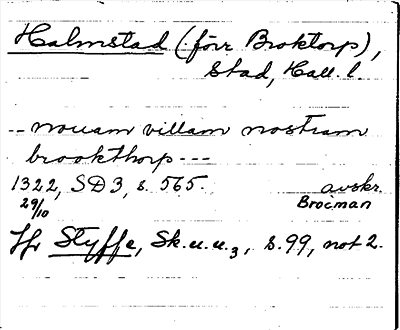 Halmstad (förr Broktorp),
Stad, Hall. l.
-- nouam villam nostram
brookthorp ---
1322, SD3, s. 565. avskr.
29/10 Brocman
Jfr Styffe, Sk.u.u.3, s.99, not 2.